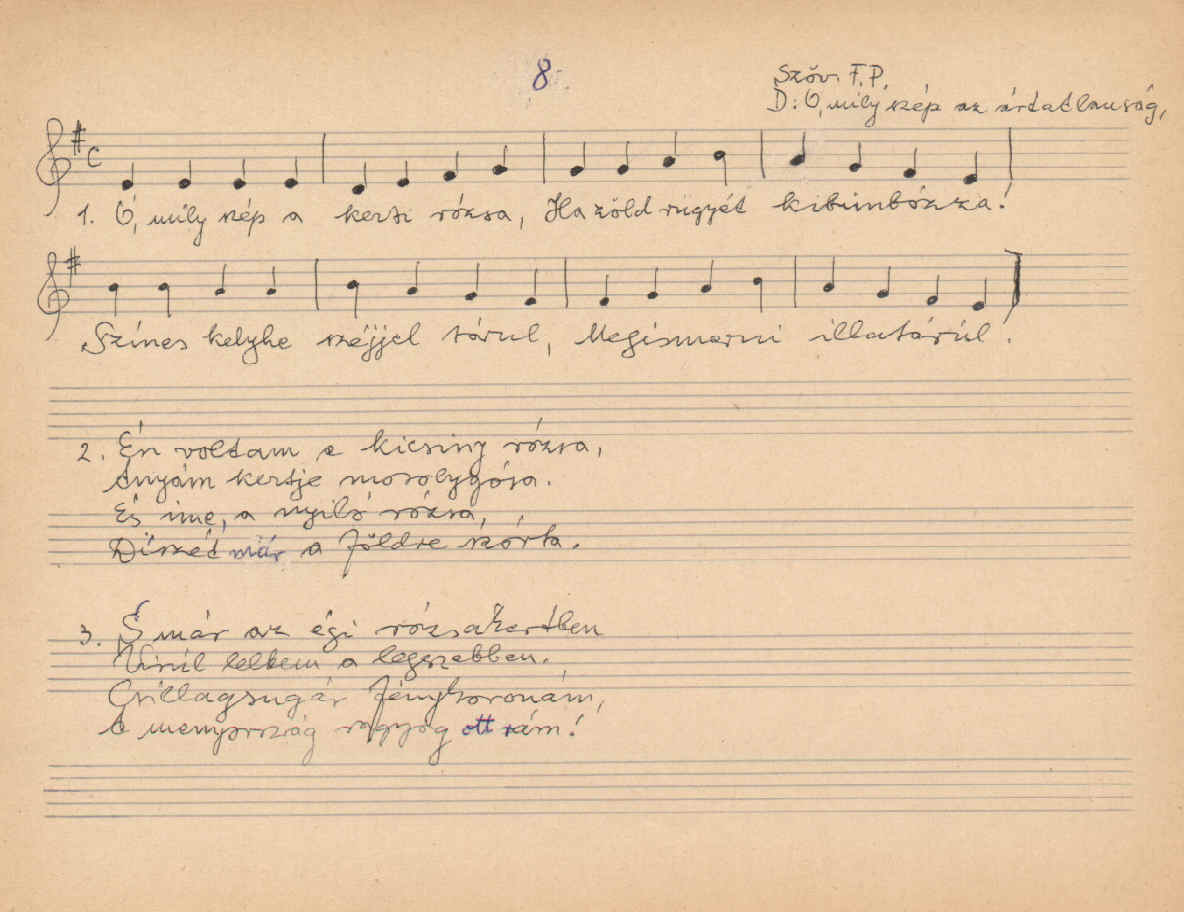 8.
Szöv. F.P.
D: Ó, mily szép az ártatlanság,
C
1. Ó, mily szép a kerti rózsa, Ha zöld rügyét kibimbózza!
Színes kelyhe széjjel tárul, Megismerni illatárúl.
2. Én voltam e kicsiny rózsa,
Anyám kertje mosolygósa.
És íme, a nyiló rózsa,
Díszét már a földre szórta.
3. S már az égi rózsakertben
Virúl lelkem a legszebben.
Csillagsugár fénykoronám,
A menyország ragyog ott rám!